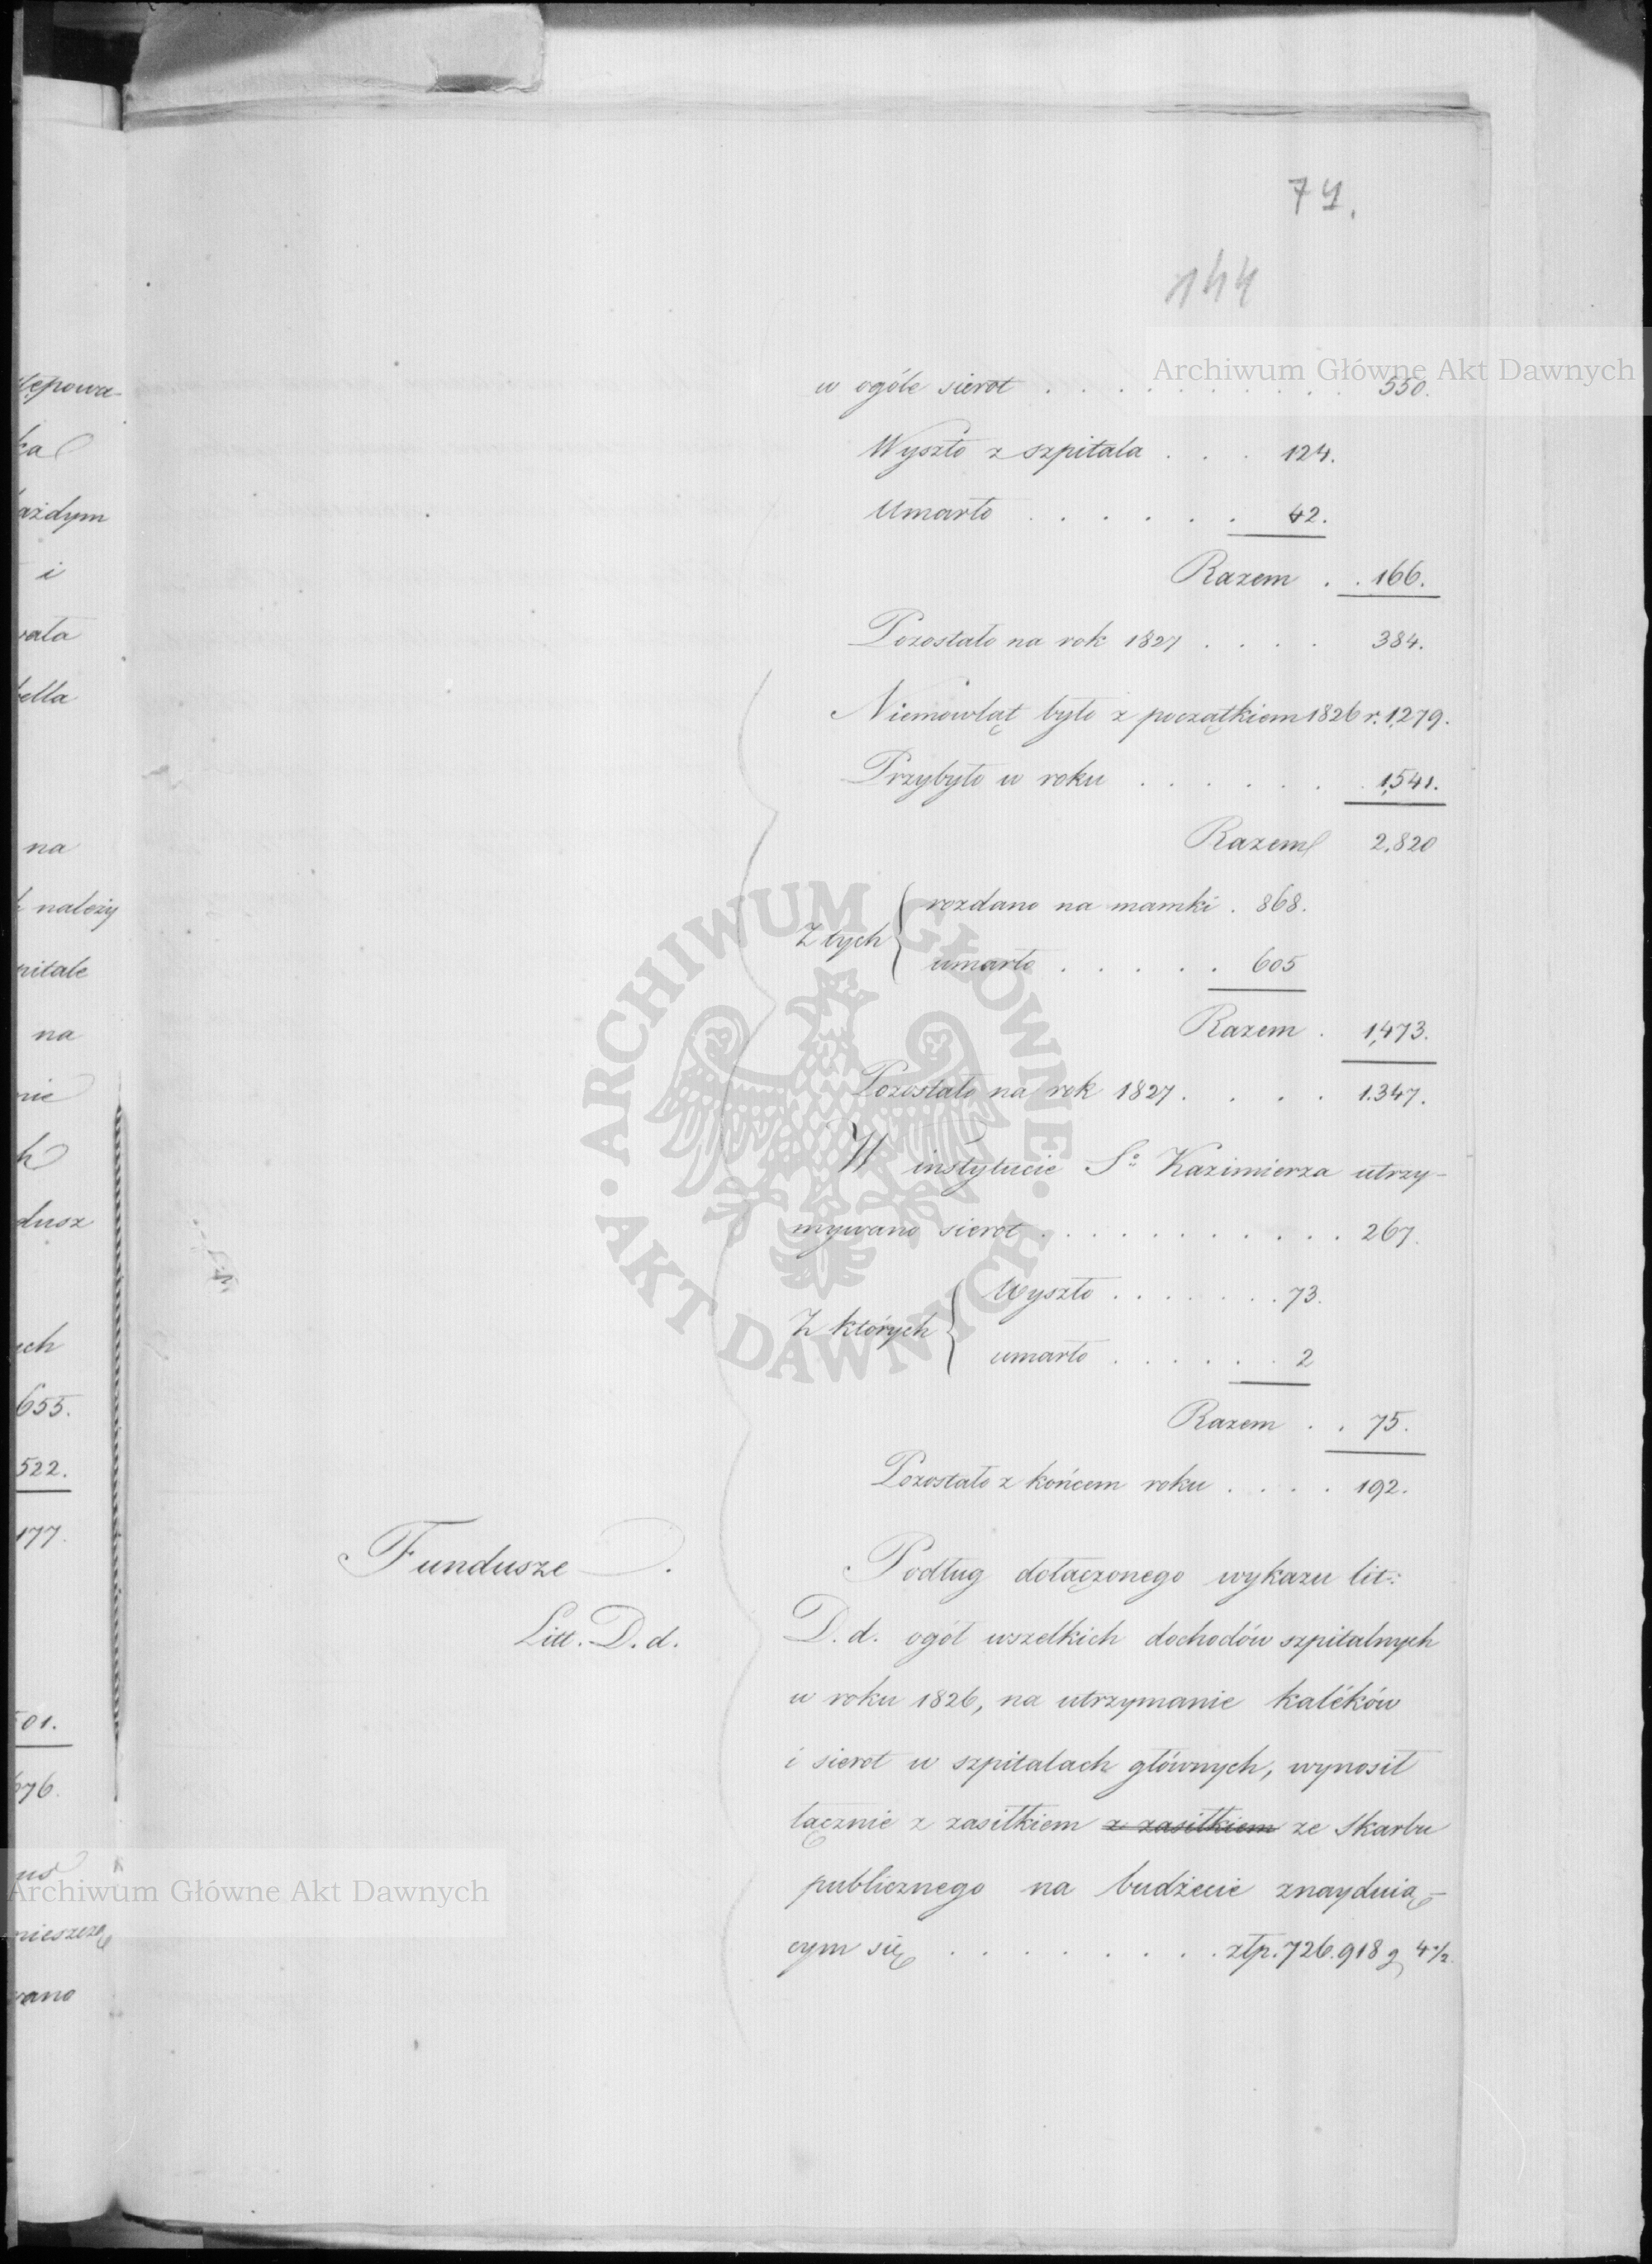 74.
144
Archiwum Główne Akt Dawnych
w ogóle sierot . . . . . . . . . . 550.
Wyszło z szpitala . . . 124.
Umarło . . . . . . 42.
Razem . . 166.
Pozostało na rok 1827 . . . . 384.
Niemowląt było z początkiem 1826 r. 1,279.
Przybyło w roku . . . . . . . 1,541.
Razem 2,820
Z tych { rozdano na mamki . 868.
umarło . . . . . 605
Razem . 1,473.
Pozostało na rok 1827 . . . . 1.347.
W instytucie Sº Kazimierza utrzy-
mywano sierot . . . . . . . . . . . 267.
Z których { Wyszło . . . . . . . 73.
umarło . . . . . . 2
Razem . . 75.
Pozostało z końcem roku . . . . 192.
Fundusze .
Litt. D. d.
Podług dołączonego wykazu lit:
D. d. ogół wszelkich dochodów szpitalnych
w roku 1826, na utrzymanie kaléków
i sierot w szpitalach głównych, wynosił
łącznie z zasiłkiem z zasiłkiem ze Skarbu
publicznego na budżecie znayduią-
cym się . . . . . . . . złp. 726.918 g 4 1/2.
ARCHIWUM GŁÓWNE · AKT DAWNYCH ·
tępowa-
ka
ażdym
i
wała
bella
na
należy
pitale
na
nie
h
dusz
ych
655.
522.
177.
501.
676.
us
Archiwum Główne Akt Dawnych
mieszczą
wano